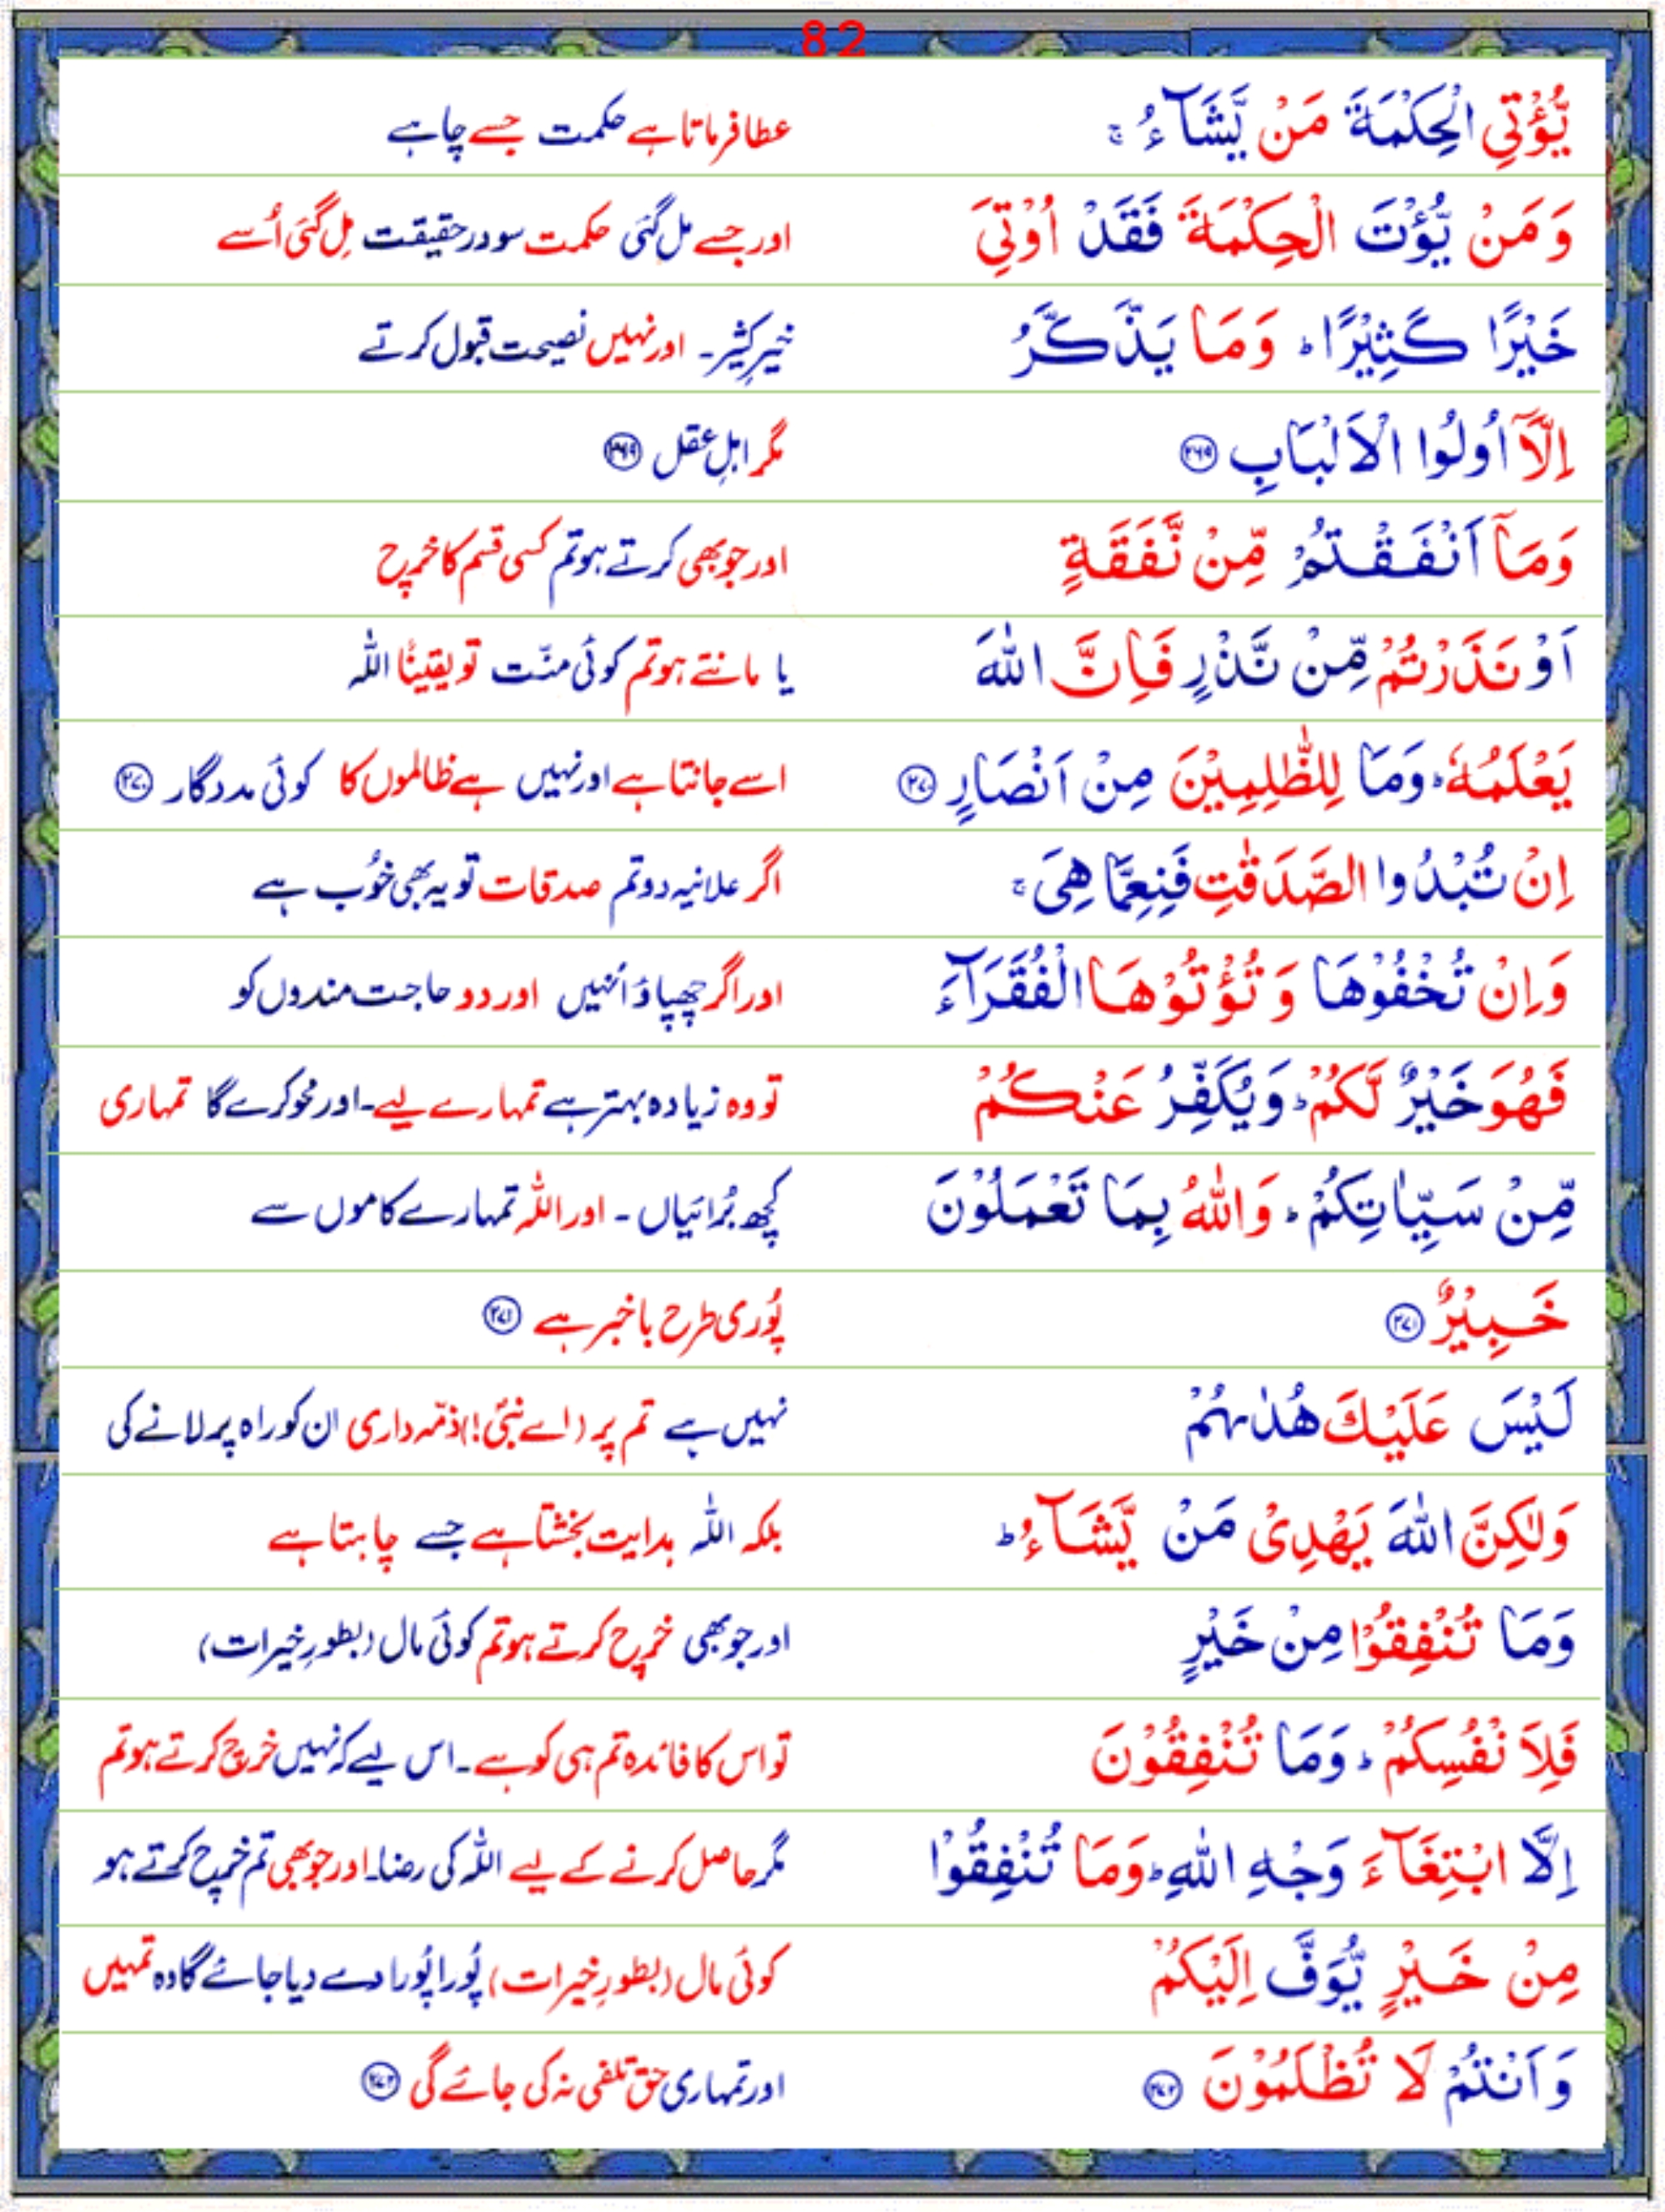 82
يُّؤْتِي الْحِكْمَةَ مَنْ يَّشَآءُ ۚ عطا فرماتا ہے حکمت جسے چاہے
وَمَنْ يُّؤْتَ الْحِكْمَةَ فَقَدْ اُوْتِيَ اور جسے مل گئی حکمت سو درحقیقت مِل گئی اُسے
خَيْرًا كَثِيْرًا ؕ وَمَا يَذَّكَّرُ خیرِ کثیر۔ اور نہیں نصیحت قبول کرتے
اِلَّآ اُولُوا الْاَلْبَابِ ۲۶۹ مگر اہلِ عقل ۲۶۹
وَمَآ اَنْفَقْتُمْ مِّنْ نَّفَقَةٍ اور جو بھی کرتے ہو تم کسی قسم کا خرچ
اَوْ نَذَرْتُمْ مِّنْ نَّذْرٍ فَاِنَّ اللّٰهَ یا مانتے ہو تم کوئی منّت تو یقینًا اللّٰہ
يَعْلَمُهٗ ؕ وَمَا لِلظّٰلِمِيْنَ مِنْ اَنْصَارٍ ۲۷۰ اسے جانتا ہے اور نہیں ہے ظالموں کا کوئی مددگار ۲۷۰
اِنْ تُبْدُوا الصَّدَقٰتِ فَنِعِمَّا هِيَ ۚ اگر علانیہ دو تم صدقات تو یہ بھی خُوب ہے
وَاِنْ تُخْفُوْهَا وَتُؤْتُوْهَا الْفُقَرَآءَ اور اگر چھپاؤ اُنہیں اور دو حاجت مندوں کو
فَهُوَ خَيْرٌ لَّكُمْ ؕ وَيُكَفِّرُ عَنْكُمْ تو وہ زیادہ بہتر ہے تمہارے لیے۔ اور محو کرے گا تمہاری
مِّنْ سَيِّاٰتِكُمْ ؕ وَاللّٰهُ بِمَا تَعْمَلُوْنَ کچھ بُرائیاں ۔ اور اللّٰہ تمہارے کاموں سے
خَبِيْرٌ ۲۷۱ پُوری طرح باخبر ہے ۲۷۱
لَيْسَ عَلَيْكَ هُدٰىهُمْ نہیں ہے تم پر (اے نبیؐ!) ذمّہ داری ان کو راہ پر لانے کی
وَلٰكِنَّ اللّٰهَ يَهْدِيْ مَنْ يَّشَآءُ ؕ بلکہ اللّٰہ ہدایت بخشتا ہے جسے چاہتا ہے
وَمَا تُنْفِقُوْا مِنْ خَيْرٍ اور جو بھی خرچ کرتے ہو تم کوئی مال (بطورِ خیرات)
فَلِاَنْفُسِكُمْ ؕ وَمَا تُنْفِقُوْنَ تو اس کا فائدہ تم ہی کو ہے۔ اس لیے کہ نہیں خرچ کرتے ہو تم
اِلَّا ابْتِغَآءَ وَجْهِ اللّٰهِ ؕ وَمَا تُنْفِقُوْا مگر حاصل کرنے کے لیے اللّٰہ کی رضا۔ اور جو بھی تم خرچ کرتے ہو
مِنْ خَيْرٍ يُّوَفَّ اِلَيْكُمْ کوئی مال (بطورِ خیرات) پُورا پُورا دے دیا جائے گا وہ تمہیں
وَاَنْتُمْ لَا تُظْلَمُوْنَ ۲۷۲ اور تمہاری حق تلفی نہ کی جائے گی ۲۷۲